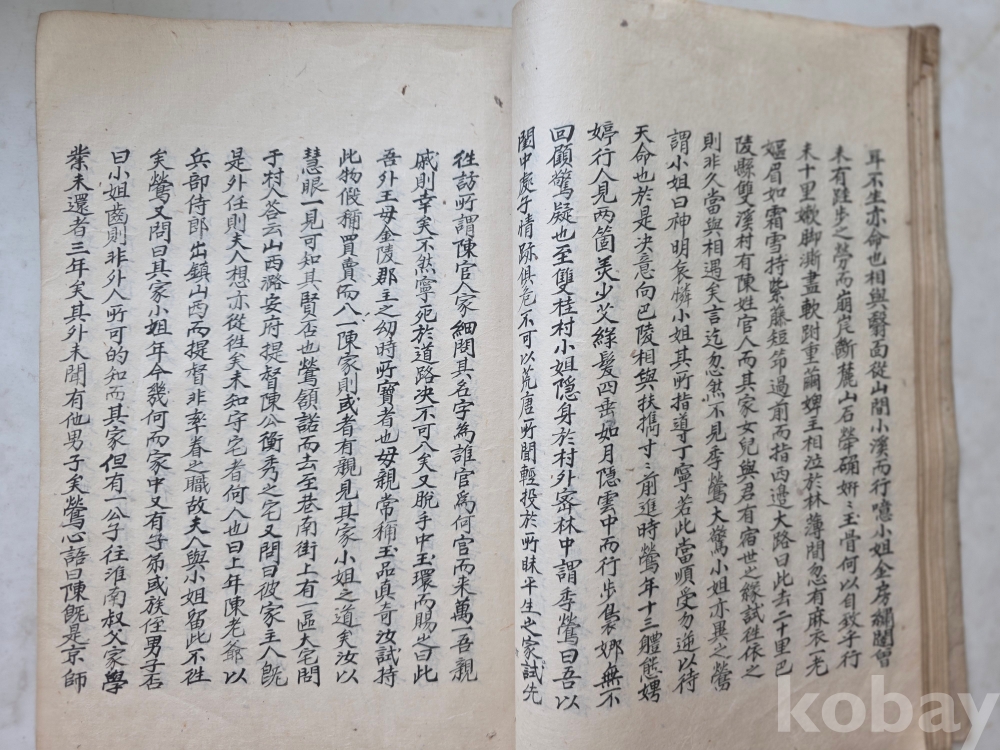 耳不生亦命也相與翳面從山間小溪而行噫小姐金房繡闥曾
未有跬步之勞而崩崖斷麓山石犖确妍〻玉骨何以自致乎行
未十里嫩脚澌盡軟跗重繭婢主相泣於林薄間忽有麻衣一老
嫗眉如霜雪持紫藤短笻過前而指西邊大路曰此去二十里巴
陵縣雙溪村有陳姓官人而其家女兒與君有宿世之緣試徃依之
則非久當與相遇矣言迄忽然不見季鶯大驚小姐亦異之鶯
謂小姐曰神明哀憐小姐其所指導丁寧若此當順受勿逆以待
天命也於是决意向巴陵相與扶携寸〻前進時鶯年十三體態娉
婷行人見兩箇美少艾綠髮四垂如月隱雲中而行步裊娜無不
回顧驚疑也至雙桂村小姐隱身於村外密林中謂季鶯曰吾以
閨中處子情跡俱危不可以荒唐所聞輕投於一所昧平生之家試先
徃訪所謂陳官人家細問其名字為誰官為何官而来萬一吾親
戚則幸矣不然寧死於道路决不可入矣又脫手中玉環而賜曰此
吾外王母金陵郡主之幼時所寶者也母親常稱玉品真奇汝試持
此物假稱買賣而入陳家則或者有親見其家小姐之道矣汝以
慧眼一見可知其賢否也鶯頷諾而去至巷南街上有一區大宅問
于村人答云山西潞安府提督陳公衡秀之宅又問曰彼家主人旣
是外任則夫人想亦從徃矣未知守宅者何人也曰上年陳老爺以
兵部侍郎出鎮山西而提督非率眷之職故夫人與小姐留此不徃
矣鶯又問曰其家小姐年今幾何而家中又有子弟或族侄男子否
曰小姐齒則非外人所可的知而其家但有一公子往淮南叔父家學
業未還者三年矣其外未聞有他男子矣鶯心語曰陳旣是京師
kobay